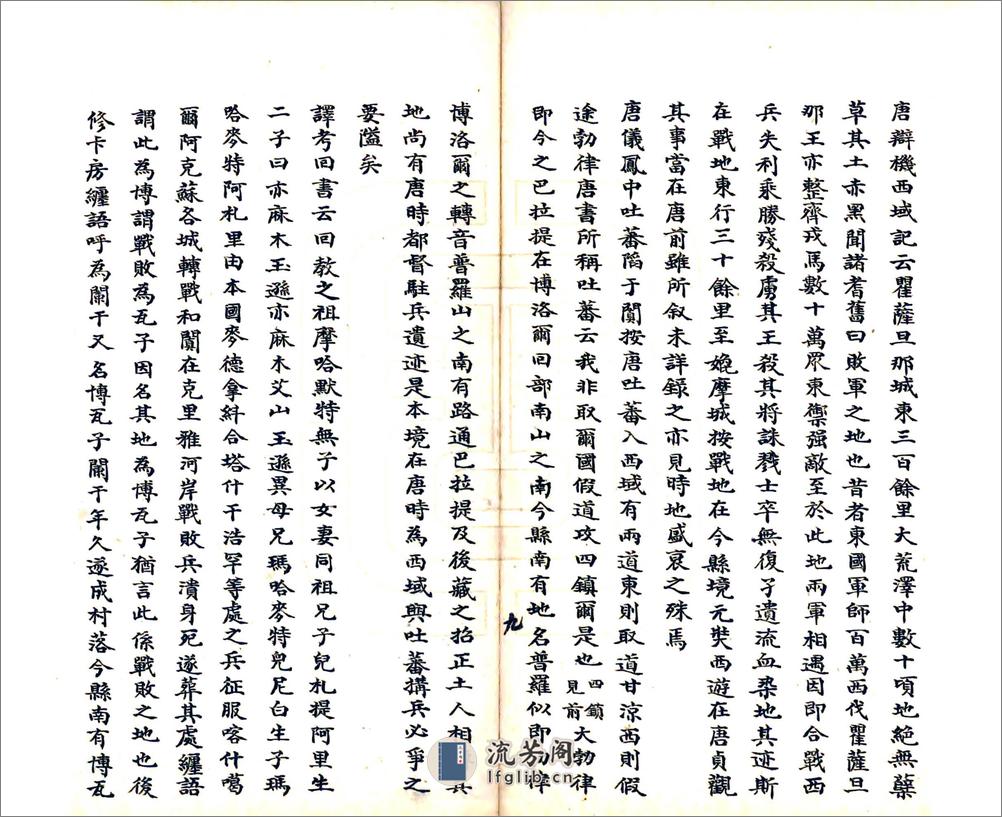 唐辯機西域記云瞿薩旦那城東三百餘里大荒澤中數十頃地絶無蘖
草其土赤黑聞諸耆舊曰敗軍之地也昔者東國軍師百萬西伐瞿薩旦
那王亦整齊戎馬數十萬眾東禦强敵至於此地兩軍相遇因即合戰西
兵失利乘勝殘殺虜其王殺其將誅戮士卒無復孑遺流血染地其迹斯
在戰地東行三十餘里至媲摩城按戰地在今縣境元奘西遊在唐貞觀
其事當在唐前雖所敘未詳錄之亦見時地盛衰之殊焉
唐儀鳳中吐蕃䧟于闐按唐吐蕃入西域有兩道東則取道甘涼西則假
途勃律唐書所稱吐蕃云我非取爾國假道攻四鎮爾是也四鎮見前大勃律
即今之巴拉提在博洛爾回部南山之南今縣南有地名普羅似即勃律
九
博洛爾之轉音普羅山之南有路通巴拉提及後藏之拾正土人相其
地尚有唐時都督駐兵遺迹是本境在唐時為西域與吐蕃搆兵必爭之
要隘矣
譯考回書云回教之祖摩哈默特無子以女妻同祖兄子兒札提阿里生
二子曰亦麻木玉遜亦麻木艾山玉遜異母兄瑪哈麥特兒尼白生子瑪
哈麥特阿札里由本國麥德拿糾合塔什干浩罕等處之兵征服喀什噶
爾阿克蘇各城轉戰和闐在克里雅河岸戰敗兵潰身死遂葬其處纏語
謂此為博謂戰敗為瓦子因名其地為博瓦子猶言此係戰敗之地也後
修卡房纏語呼為闌干又名博瓦子闌干年久遂成村落今縣南有博瓦
流芳阁
lfglib.cn